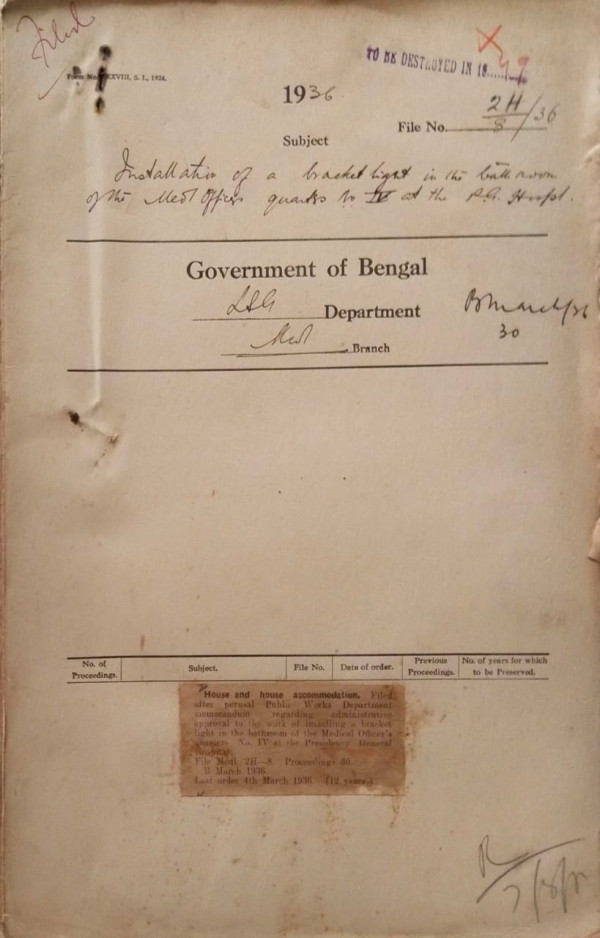 Filed
Form No. XXVIII, S. I., 1926.
TO BE DESTROYED IN 19
1936
File No. 2H/8/36
Subject
Installation of a bracket light in the bath room
of the Medl Officers quarters No IV at the P.G. Hospl.
Government of Bengal
LSG Department
B March/36
30
Medl Branch
No. of Proceedings. Subject. File No. Date of order. Previous Proceedings. No. of years for which to be Preserved.
House and house accommodation. Filed,
after perusal Public Works Department
memorandum regarding administrative
approval to the work of installing a bracket
light in the bathroom of the Medical Officer's
quarters No. IV at the Presidency General
Hospital.
File Medl. 2H—8. Proceedings 30.
B March 1936
Last order 4th March 1936 (12 years.)